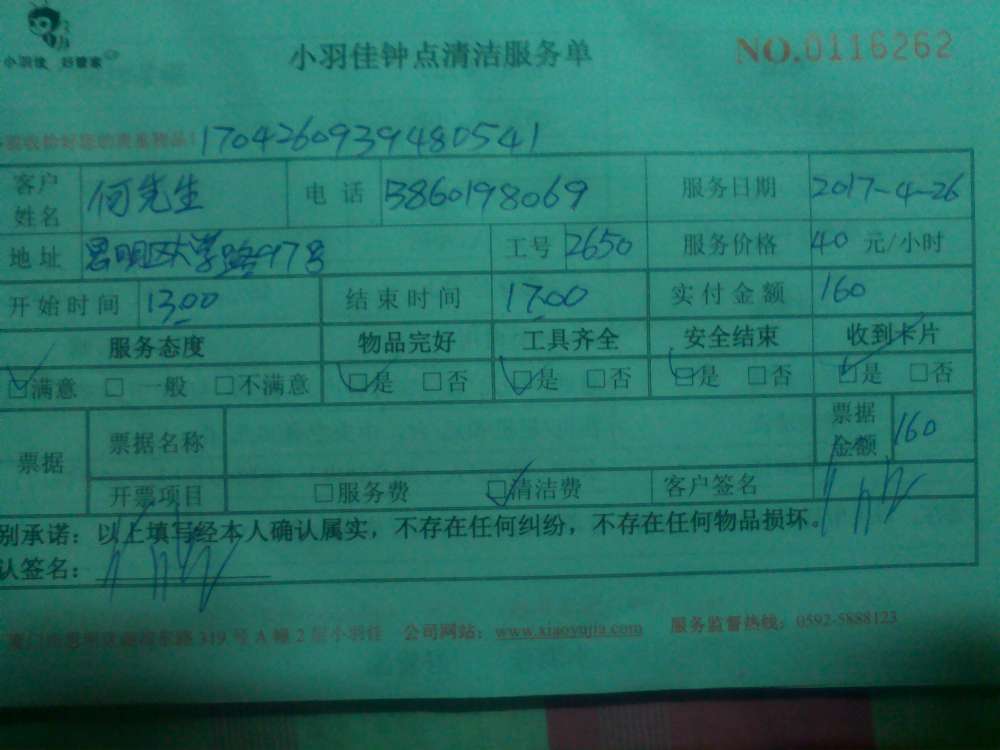 小羽佳 好管家
小羽佳钟点清洁服务单
NO.0116262
1704260939480541
客户姓名 何先生 电话 13860198069 服务日期 2017-4-26
地址 思明区大学路97号 工号 2650 服务价格 40 元/小时
开始时间 13:00 结束时间 17:00 实付金额 160
服务态度 物品完好 工具齐全 安全结束 收到卡片
☑满意 □一般 □不满意 ☑是 □否 ☑是 □否 ☑是 □否 ☑是 □否
票据 票据名称 票据金额 160
开票项目 □服务费 ☑清洁费 客户签名
别承诺：以上填写经本人确认属实，不存在任何纠纷，不存在任何物品损坏。
认签名：
319号A幢2层小羽佳 公司网站：www.xiaoyujia.com 服务监督热线：0592-5888123